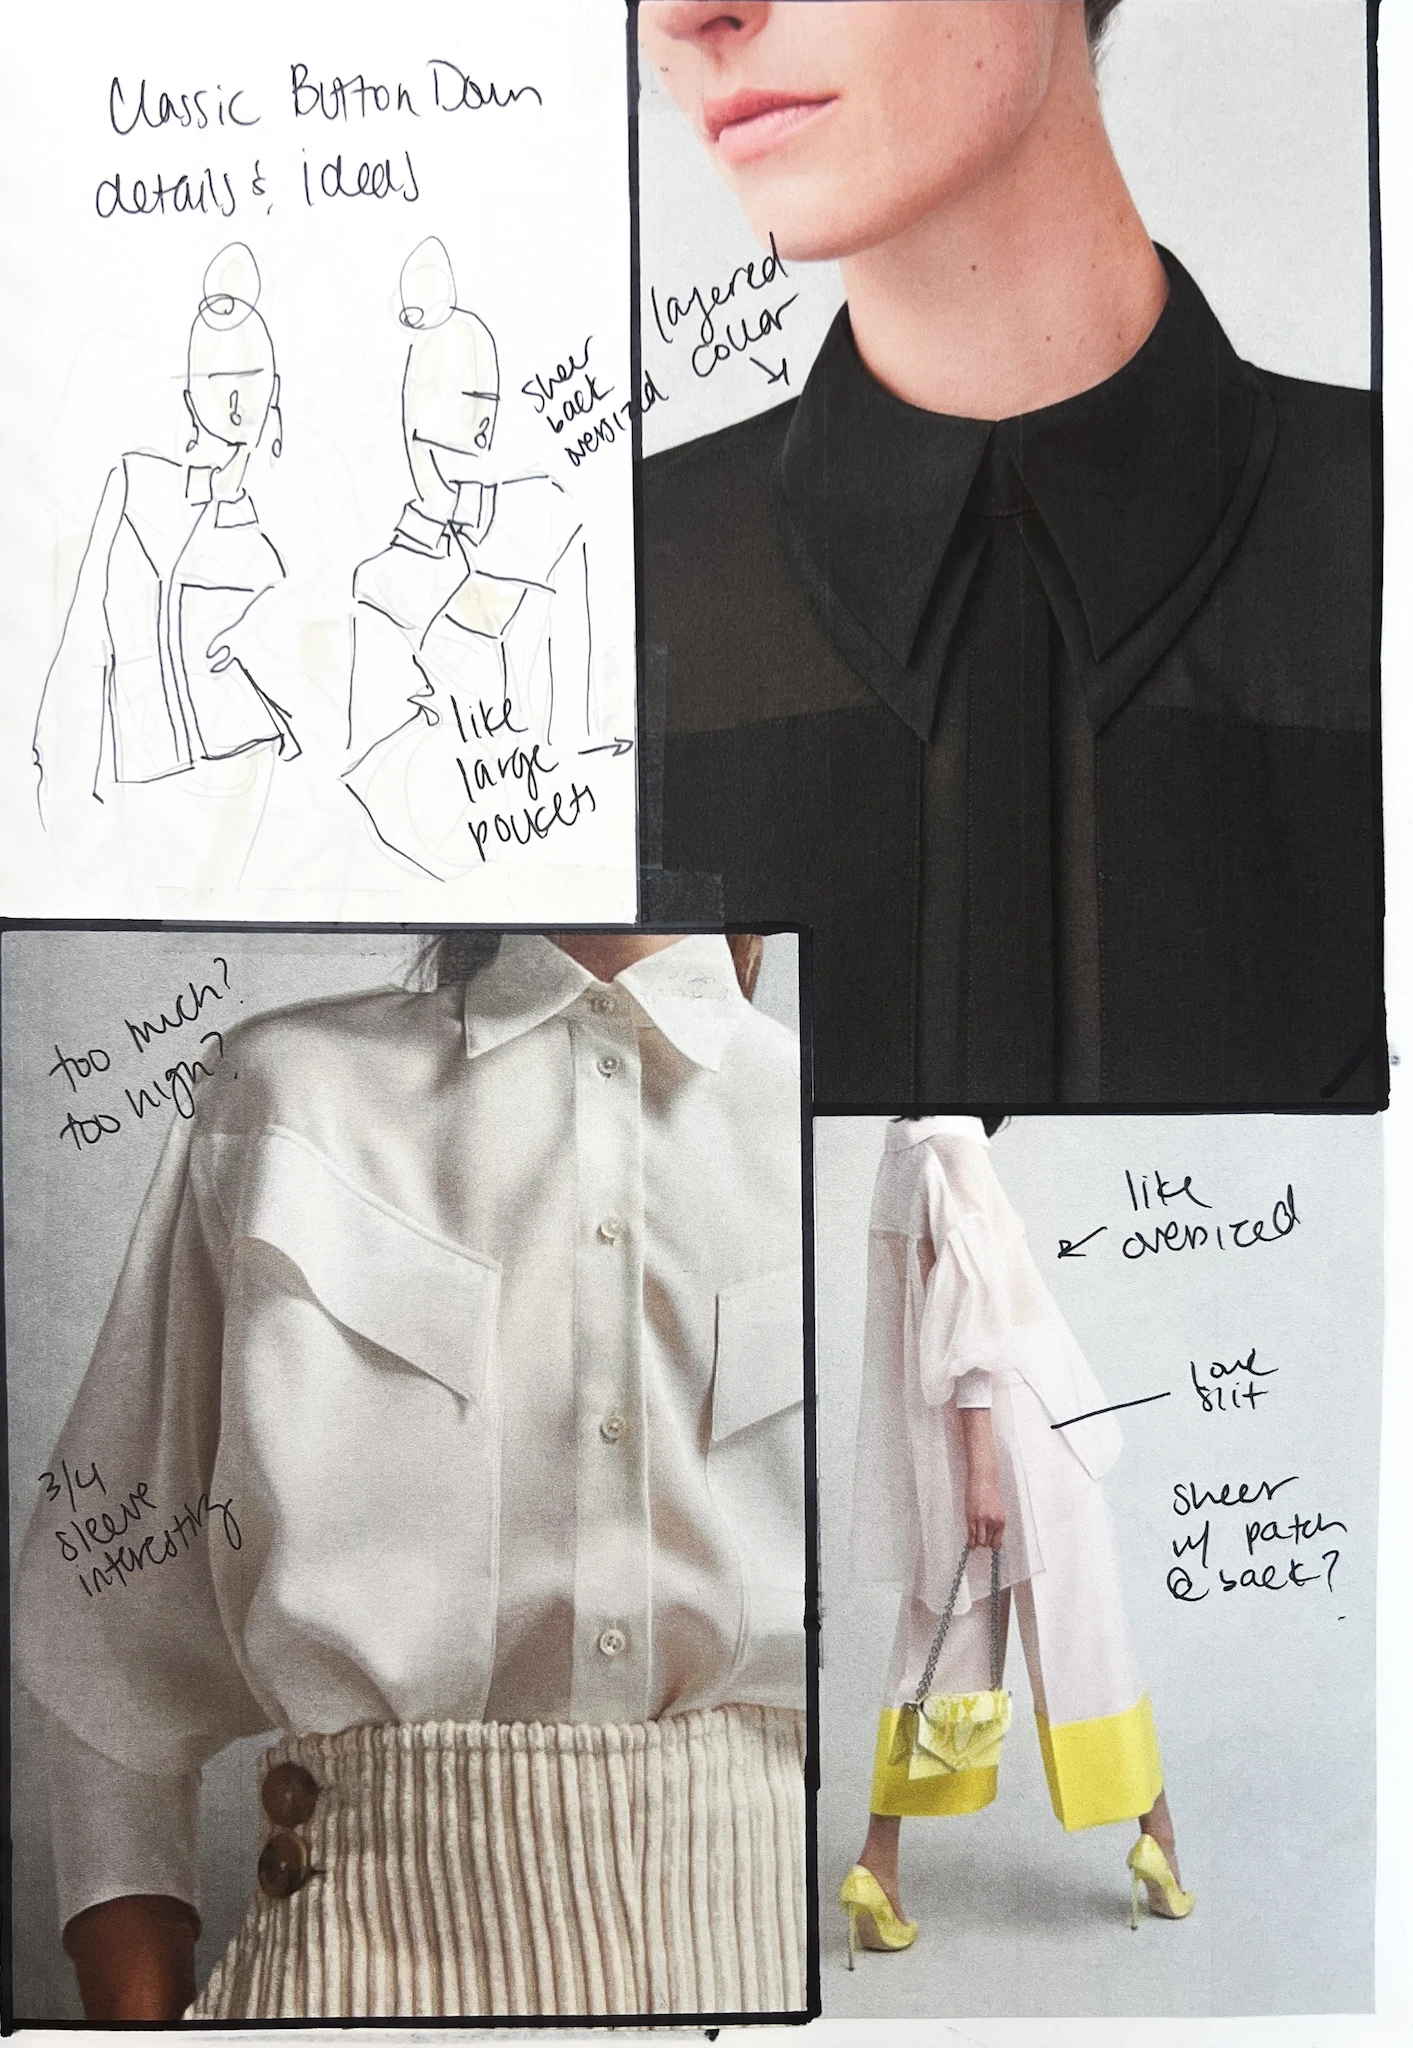 Classic Button Down
details & ideas
layered
collar
sheer
back
oversized
like
large
pockets
too much?
too high?
3/4
sleeve
interesting
like
oversized
love
slit
sheer
w/ patch
@ back?